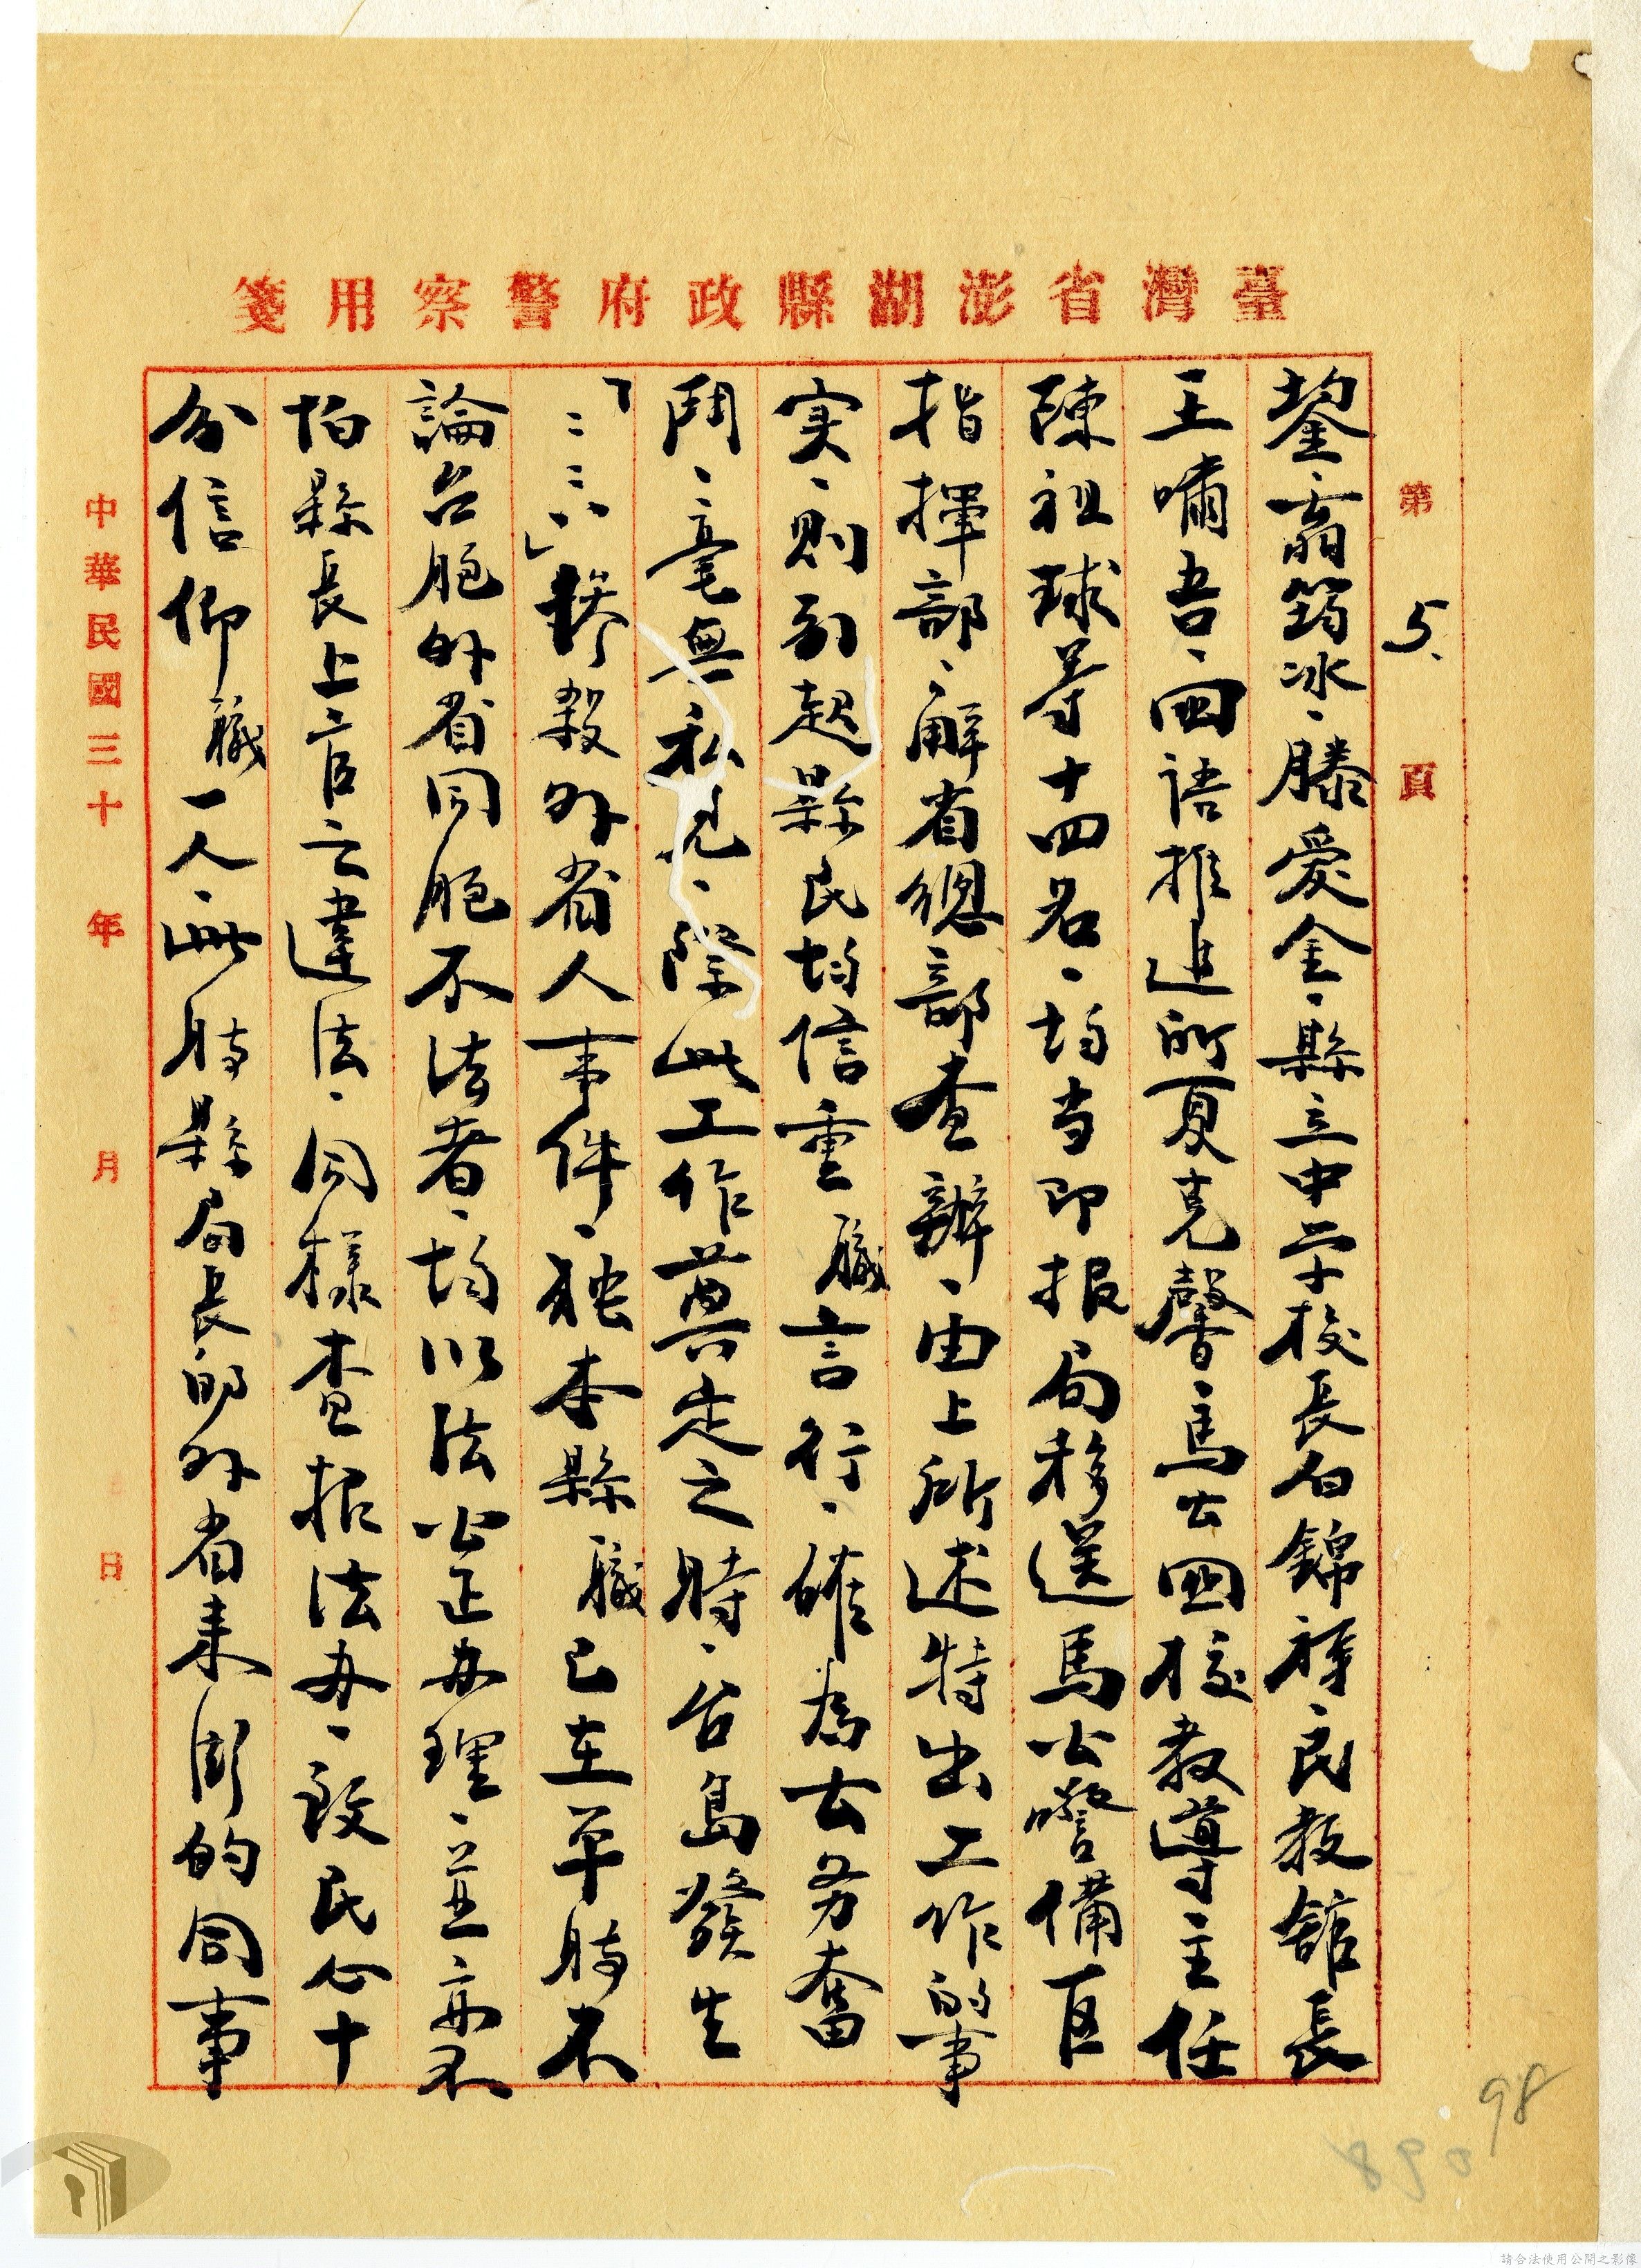 臺灣省澎湖縣政府警察用箋
第5.頁
鋆、翁筠冰、滕愛金、縣立中学校長白錦祥、民教舘長
王嘯吾、国語推進所夏克馨、馬公国校教導主任
陳祖球等十四名、均当即报局移送馬公警备区
指揮部、解省總部查辦、由上所述特出工作的事
实、則引起縣民均信重職言行、確為去务奮
鬥、毫無私見、際此工作莫走之時、台島發生
「二二八」毆殺外省人事件、独本縣職已在平時不
論台胞外省同胞不法者、均以法公正办理、並亦不
怕縣長上官之違法、同樣查报法办、致民心十
分信仰職一人、此時縣局長的外省来澎的同事
中華民國三十年月日
98
890
請合法使用公開之影像